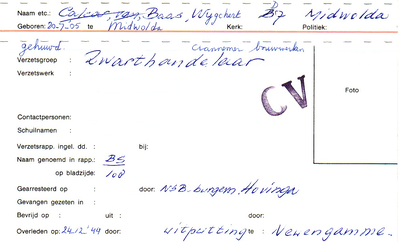 Naam etc.: Baas, Wygchert B7 Midwolda
Geboren: 20-9-05 te Midwolda Kerk: Politiek:
gehuwd aannemer bouwwerken
Verzetsgroep : Zwarthandelaar
Verzetswerk
CV
Foto
Contactpersonen:
Schuilnamen :
Verzetsrapp. ingel. dd. : bij:
Naam genoemd in rapp.: BS
op bladzijde: 108
Gearresteerd op : door: NSB-burgem. Hovinga
Gevangen gezeten in :
Bevrijd op : uit : door:
Overleden op: 24-12-'44 door: uitputting te : Neuengamme